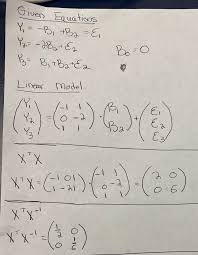 Given Equations
Y₁ = -B₁ + B₂ = ε₁
Y₂ = -2B₂ + ε₂
B₀ = 0
Y₃ = B₁ + B₂ + ε₂
Linear Model
(Y₁ Y₂ Y₃) = (-1 1; 0 -2; 1 1) · (B₁ B₂) + (ε₁ ε₂ ε₃)
XᵀX
XᵀX = (-1 0 1; 1 -2 1) · (-1 1; 0 -2; 1 1) = (2 0; 0 6)
XᵀX⁻¹
XᵀX⁻¹ = (1/2 0; 0 1/6)